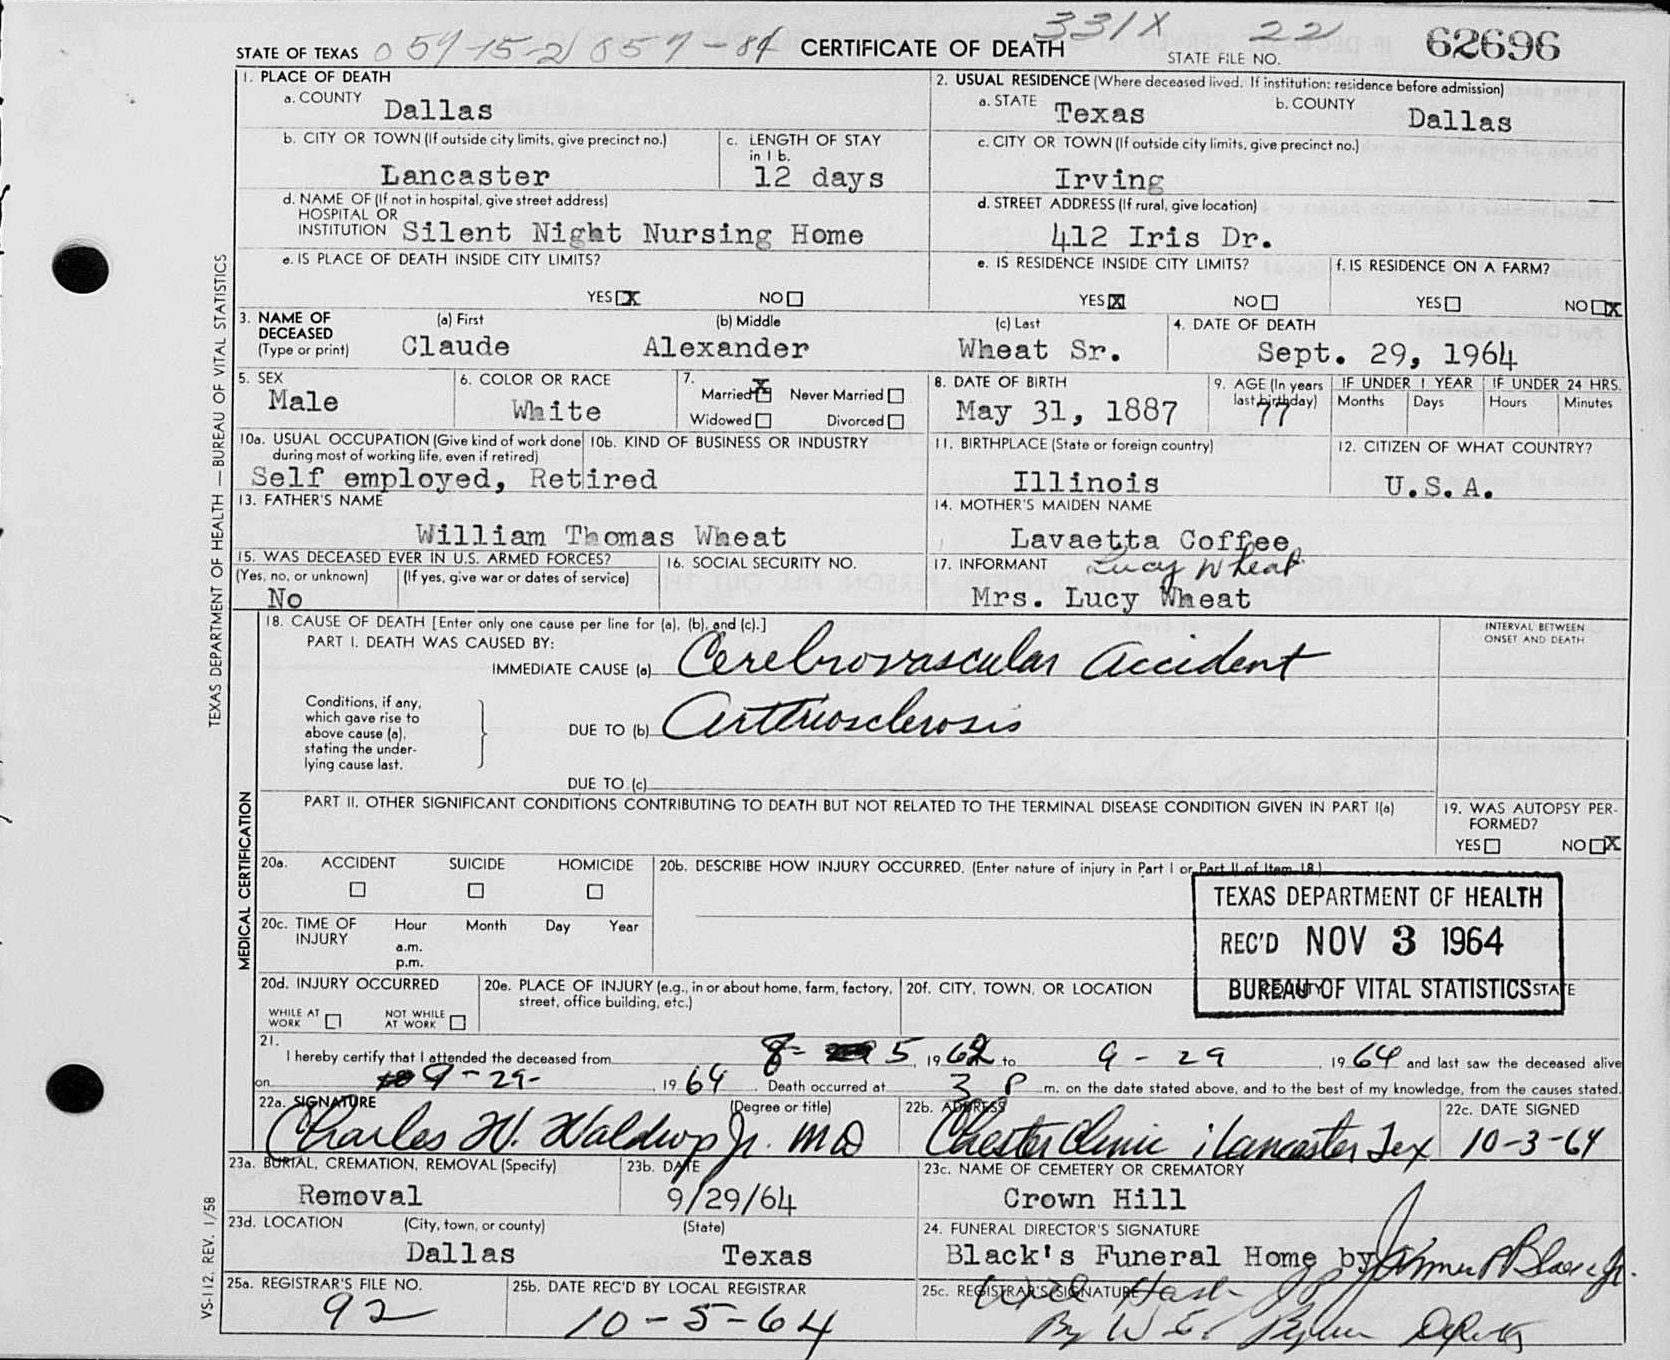 331X 22
STATE OF TEXAS 059-15-2 857-84 CERTIFICATE OF DEATH STATE FILE NO. 62696
1. PLACE OF DEATH
a. COUNTY Dallas
2. USUAL RESIDENCE (Where deceased lived. If institution: residence before admission)
a. STATE Texas b. COUNTY Dallas
b. CITY OR TOWN (If outside city limits, give precinct no.) Lancaster
c. LENGTH OF STAY in 1 b. 12 days
c. CITY OR TOWN (If outside city limits, give precinct no.) Irving
d. NAME OF (If not in hospital, give street address)
HOSPITAL OR
INSTITUTION Silent Night Nursing Home
d. STREET ADDRESS (If rural, give location)
412 Iris Dr.
e. IS PLACE OF DEATH INSIDE CITY LIMITS?
YES X NO
e. IS RESIDENCE INSIDE CITY LIMITS?
YES X NO
f. IS RESIDENCE ON A FARM?
YES NO X
3. NAME OF DECEASED (Type or print)
(a) First (b) Middle (c) Last
Claude Alexander Wheat Sr.
4. DATE OF DEATH
Sept. 29, 1964
5. SEX
Male
6. COLOR OR RACE
White
7. Married X Never Married
Widowed Divorced
8. DATE OF BIRTH
May 31, 1887
9. AGE (In years last birthday)
77
IF UNDER 1 YEAR
Months Days
IF UNDER 24 HRS.
Hours Minutes
10a. USUAL OCCUPATION (Give kind of work done during most of working life, even if retired)
10b. KIND OF BUSINESS OR INDUSTRY
Self employed, Retired
11. BIRTHPLACE (State or foreign country)
Illinois
12. CITIZEN OF WHAT COUNTRY?
U.S.A.
13. FATHER'S NAME
William Thomas Wheat
14. MOTHER'S MAIDEN NAME
Lavaetta Coffee
15. WAS DECEASED EVER IN U.S. ARMED FORCES?
(Yes, no, or unknown) (If yes, give war or dates of service)
No
16. SOCIAL SECURITY NO.
17. INFORMANT Lucy Wheat
Mrs. Lucy Wheat
18. CAUSE OF DEATH [Enter only one cause per line for (a), (b), and (c).]
INTERVAL BETWEEN
ONSET AND DEATH
PART I. DEATH WAS CAUSED BY:
IMMEDIATE CAUSE (a) Cerebrovascular Accident
Conditions, if any,
which gave rise to
above cause (a),
stating the under-
lying cause last.
DUE TO (b) Arteriosclerosis
DUE TO (c)
PART II. OTHER SIGNIFICANT CONDITIONS CONTRIBUTING TO DEATH BUT NOT RELATED TO THE TERMINAL DISEASE CONDITION GIVEN IN PART I(a)
19. WAS AUTOPSY PER-
FORMED?
YES NO X
20a. ACCIDENT SUICIDE HOMICIDE
20b. DESCRIBE HOW INJURY OCCURRED. (Enter nature of injury in Part I or Part II of Item 18.)
20c. TIME OF INJURY Hour Month Day Year
a.m.
p.m.
TEXAS DEPARTMENT OF HEALTH
REC'D NOV 3 1964
BUREAU OF VITAL STATISTICS
20d. INJURY OCCURRED
WHILE AT WORK NOT WHILE AT WORK
20e. PLACE OF INJURY (e.g., in or about home, farm, factory, street, office building, etc.)
20f. CITY, TOWN, OR LOCATION COUNTY STATE
21. I hereby certify that I attended the deceased from 8- 5, 1962 to 9-29, 1964 and last saw the deceased alive
on 9-29-, 1964. Death occurred at 3 P m. on the date stated above, and to the best of my knowledge, from the causes stated.
22a. SIGNATURE (Degree or title)
Charles W. Waldrop Jr. MD
22b. ADDRESS
Chester Clinic, Lancaster Tex
22c. DATE SIGNED
10-3-64
23a. BURIAL, CREMATION, REMOVAL (Specify)
Removal
23b. DATE
9/29/64
23c. NAME OF CEMETERY OR CREMATORY
Crown Hill
23d. LOCATION (City, town, or county) (State)
Dallas Texas
24. FUNERAL DIRECTOR'S SIGNATURE
Black's Funeral Home by
25a. REGISTRAR'S FILE NO.
92
25b. DATE REC'D BY LOCAL REGISTRAR
10-5-64
25c. REGISTRAR'S SIGNATURE
By
TEXAS DEPARTMENT OF HEALTH — BUREAU OF VITAL STATISTICS
MEDICAL CERTIFICATION
VS-112, REV. 1/58